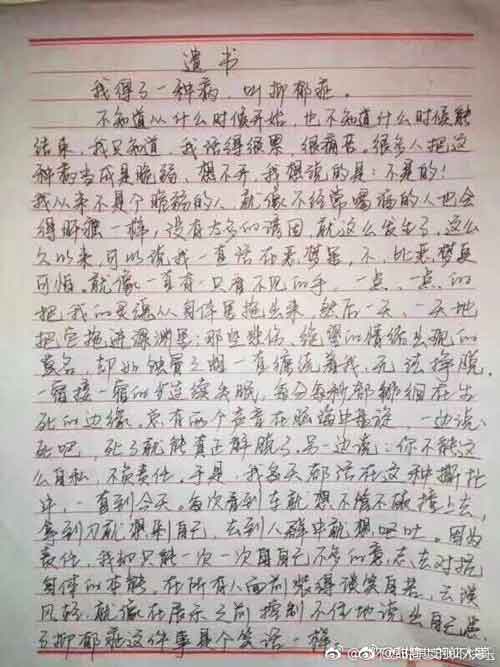 遗书
我得了一种病，叫抑郁症。
不知道从什么时候开始，也不知道什么时候能
结束，我只知道，我活得很累，很痛苦。很多人把这
种病当成是脆弱，想不开，我想说的是：不是的！
我从来不是个脆弱的人，就像不经常喝酒的人也会
得肝癌一样，没有太多的诱因，就这么发生了，这么
久以来，可以说我一直活在恶梦里，不，比恶梦更
可怕。就像一直有一只看不见的手，一点、一点的
把我的灵魂从身体里拖出来，然后一天、一天地
把它拖进深渊里；那些悲伤、绝望的情绪出现的
莫名，却如蚀骨之蛆一直缠绕着我，无法挣脱。
一宿接一宿的连续失眠，每分每秒都徘徊在生
死的边缘，总有两个声音在脑海中，一边说：
死吧，死了就能真正解脱了，另一边说：你不能这
么自私，不负责任。于是，我每天都活在这种撕扯
中，一直到今天。每次看到车就想不管不顾撞上去，
拿到刀就想剁自己，去到人群中就想呕吐。因为
责任，我却只能一次一次用自己不多的意志去对抗
身体的本能。在所有人面前装得谈笑自若，云淡
风轻，就像在展示之前控制不住地说出自己患
了抑郁症这件事是个笑话一样